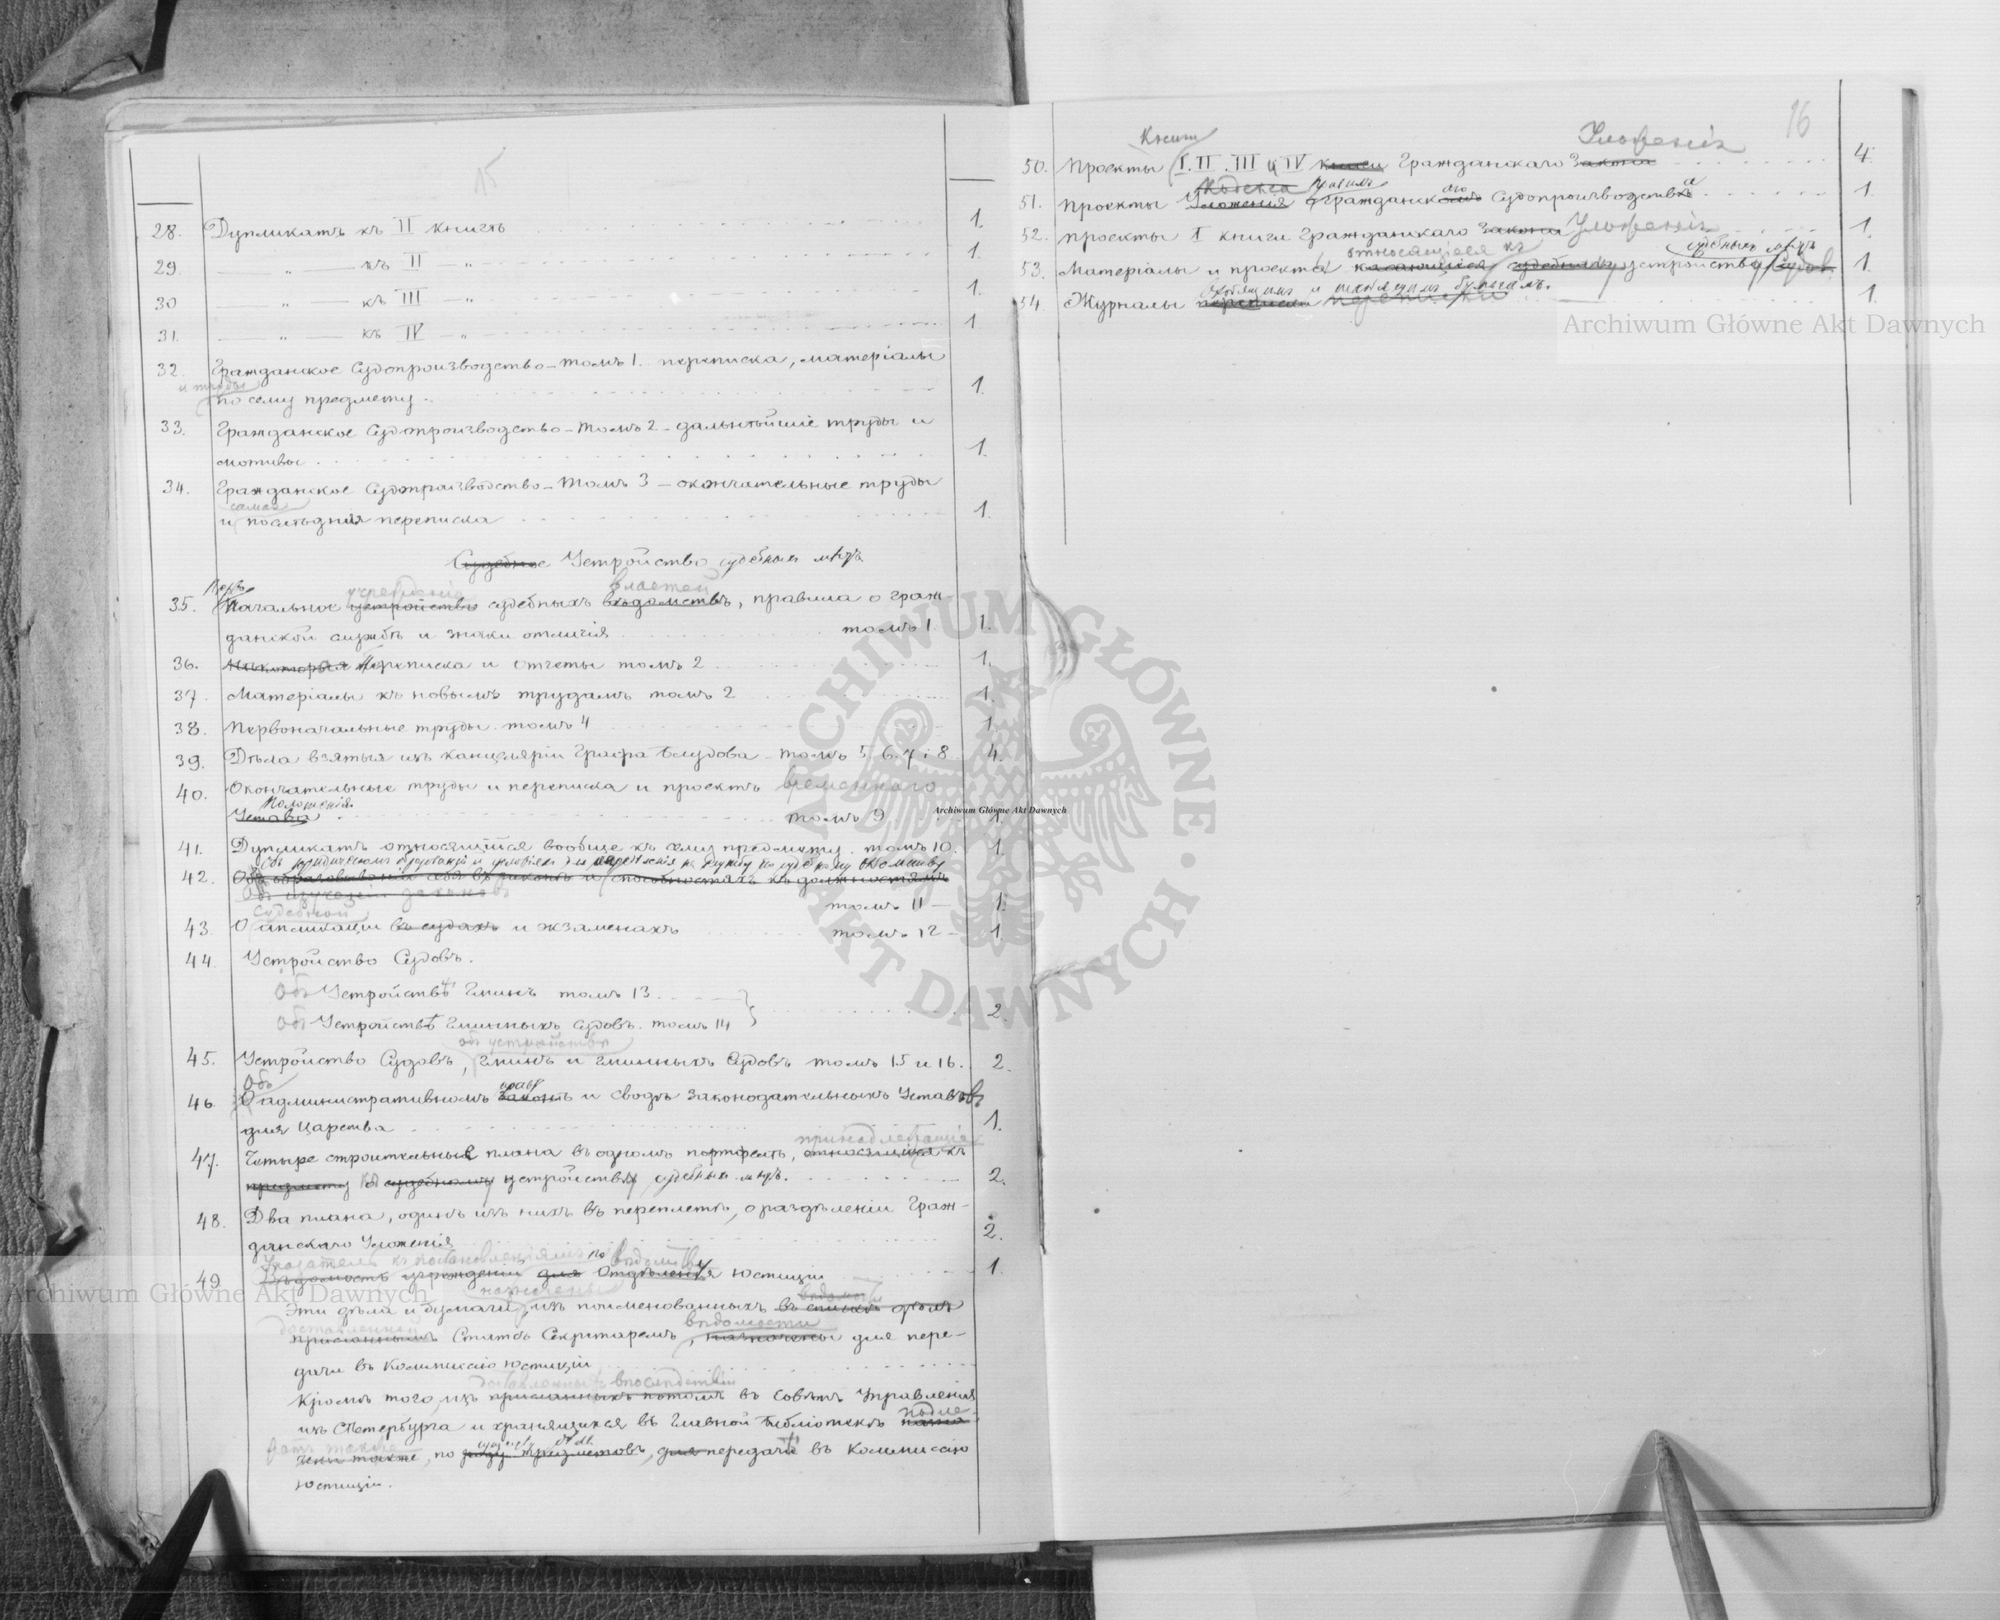 15
28. Дупликатъ къ II книгѣ 1.
29. — „ — къ II — „ 1.
30 — „ — къ III — „ 1.
31. — „ — къ IV — „ 1.
32. Гражданское Судопроизводство – томъ 1. переписка, матеріалы
и труды
по сему предмету. 1.
33. Гражданское Судопроизводство – томъ 2 – дальнѣйшіе труды и
мотивы 1.
34. Гражданское Судопроизводство – томъ 3 – окончательные труды
самая
и послѣдняя переписка 1.
Судебное Устройство судебныхъ мѣстъ
Перво учрежденіе властей
35. Начальное устройство судебныхъ вѣдомствъ, правила о граж-
данской службѣ и знаки отличія томъ 1. 1.
36. Нѣкоторыя Переписка и отчеты томъ 2 1.
37. Матеріалы къ новымъ трудамъ томъ 2 1.
38. Первоначальные труды. томъ 4 1.
39. Дѣла взятыя изъ канцеляріи Графа Блудова – томъ 5, 6, 7 и 8 4.
40. Окончательные труды и переписка и проектъ временнаго
Положенія
Устава томъ 9 1.
41. Дупликатъ относящійся вообще къ сему предмету. томъ 10. 1.
42. Объ образованіи себя въ и способностяхъ къ должностямъ
Объ изученіи законовъ
томъ 11 – 1.
судебной
43. О апликаціи въ судахъ и экзаменахъ томъ 12 – 1.
44. Устройство Судовъ.
Объ Устройствѣ Гминъ томъ 13
Объ Устройствѣ Гминныхъ Судовъ. томъ 14 2.
объ устройствѣ
45. Устройство Судовъ, Гминъ и Гминныхъ Судовъ томъ 15 и 16. 2.
Объ правѣ
46. О административномъ законѣ и сводѣ законодательныхъ Уставовъ
для Царства 1.
принадлежащіе
47. Четыре строительные плана въ одномъ портфелѣ, относящіяся къ
предмету къ судебному устройству судебныхъ мѣстъ. 2.
48. Два плана, одинъ изъ нихъ въ переплетѣ, о раздѣленіи Граж-
данскаго Уложенія 2.
Указатель къ постановленіямъ по вѣдомству
49. Вѣдомость учрежденій для Отдѣленія юстиціи 1.
назначены вѣдомости
Эти дѣла и бумаги, изъ поименованныхъ въ спискѣ
доставленной вѣдомости
присланнымъ Статсъ Секретаремъ, назначены для пере-
дачи въ Коммисію юстиціи
доставленныхъ впослѣдствіи
Кромѣ того, изъ присланныхъ потомъ въ Совѣтъ Управленія
изъ СПетербурга и хранящихся въ Главной библіотекѣ
подле-
жатъ также
чены также, по роду предметовъ, для передачи въ Коммисію
юстиціи.
16
Книги Уложенія
50. Проекты I. II. III и IV книги Гражданскаго Закона 4.
Кодекса правилъ
51. Проекты Уложенія Гражданскаго Судопроизводства 1.
52. Проекты I книги Гражданскаго Закона Уложенія 1.
относящіеся къ судебныхъ мѣстъ
53. Матеріалы и проекты касающіеся судебному устройству Судов. 1.
входящимъ и исходящимъ бумагамъ.
54. Журналы переписки переписки 1.
Archiwum Główne Akt Dawnych
ARCHIWUM GŁÓWNE AKT DAWNYCH
Archiwum Główne Akt Dawnych
Archiwum Główne Akt Dawnych